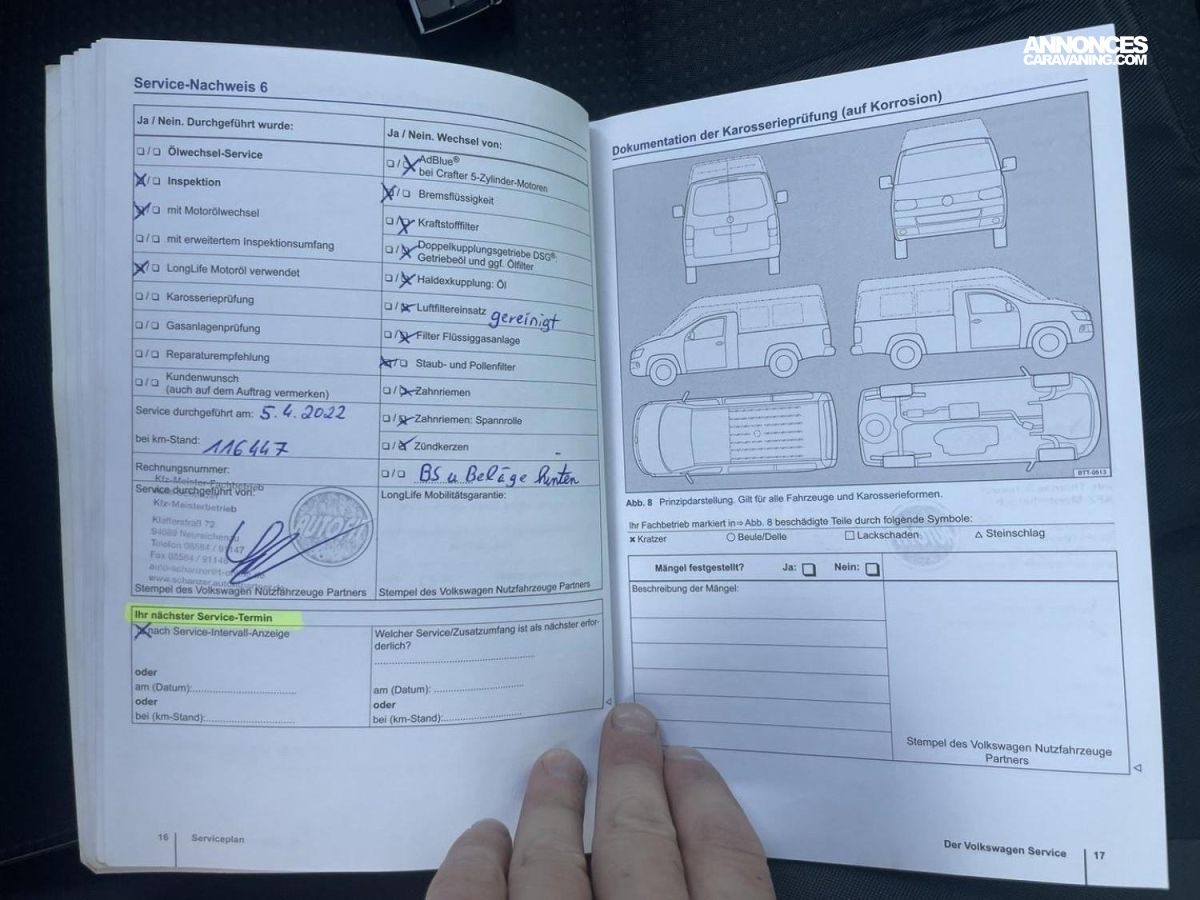 ANNONCES
CARAVANING.COM
Service-Nachweis 6
Ja / Nein. Durchgeführt wurde:
❑/❑ Ölwechsel-Service
❑/❑ Inspektion
❑/❑ mit Motorölwechsel
❑/❑ mit erweitertem Inspektionsumfang
❑/❑ LongLife Motoröl verwendet
❑/❑ Karosserieprüfung
❑/❑ Gasanlagenprüfung
❑/❑ Reparaturempfehlung
❑/❑ Kundenwunsch
(auch auf dem Auftrag vermerken)
Service durchgeführt am: 5.4.2022
bei km-Stand: 116447
Rechnungsnummer:
Kfz-Meister-Fachbetrieb
Service durchgeführt von:
Kfz-Meisterbetrieb
Klafferstraß 72
94089 Neureichenau
Telefon 08584 / 91147
Fax 08584 / 91148
Stempel des Volkswagen Nutzfahrzeuge Partners
Ja / Nein. Wechsel von:
❑/❑ AdBlue®
bei Crafter 5-Zylinder-Motoren
❑/❑ Bremsflüssigkeit
❑/❑ Kraftstofffilter
❑/❑ Doppelkupplungsgetriebe DSG®:
Getriebeöl und ggf. Ölfilter
❑/❑ Haldexkupplung: Öl
❑/❑ Luftfiltereinsatz gereinigt
❑/❑ Filter Flüssiggasanlage
❑/❑ Staub- und Pollenfilter
❑/❑ Zahnriemen
❑/❑ Zahnriemen: Spannrolle
❑/❑ Zündkerzen
❑/❑ BS u Beläge hinten
LongLife Mobilitätsgarantie:
Stempel des Volkswagen Nutzfahrzeuge Partners
Ihr nächster Service-Termin
nach Service-Intervall-Anzeige
oder
am (Datum):
oder
bei (km-Stand):
Welcher Service/Zusatzumfang ist als nächster erfor-
derlich?
am (Datum):
oder
bei (km-Stand):
16 Serviceplan
Dokumentation der Karosserieprüfung (auf Korrosion)
BTT-0513
Abb. 8 Prinzipdarstellung. Gilt für alle Fahrzeuge und Karosserieformen.
Ihr Fachbetrieb markiert in ⇨ Abb. 8 beschädigte Teile durch folgende Symbole:
× Kratzer ○ Beule/Delle □ Lackschaden △ Steinschlag
Mängel festgestellt? Ja: ❑ Nein: ❑
Beschreibung der Mängel:
Stempel des Volkswagen Nutzfahrzeuge
Partners
Der Volkswagen Service 17